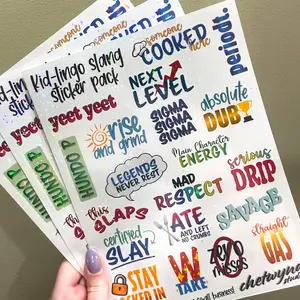 someone
COOKED
here
periodt
Kid-lingo slang
sticker pack
NEXT
LEVEL
yeet yeet
SIGMA
SIGMA
SIGMA
absolute
DUB
rise
and grind
HUNDO P
LEGENDS
NEVER REST
Main Character
ENERGY
MAD
RESPECT
serious
DRIP
this
SLAPS
ATE
AND LEFT
NO CRUMBS
SAVAGE
certified
SLAY
W
TAKE
straight
GAS
STAY
LOCKED IN
chetwyne
small business!
someone
Kid-lingo
sticker
yeet
HUNDO P
Kid-
stic
yeet
HUNDO P